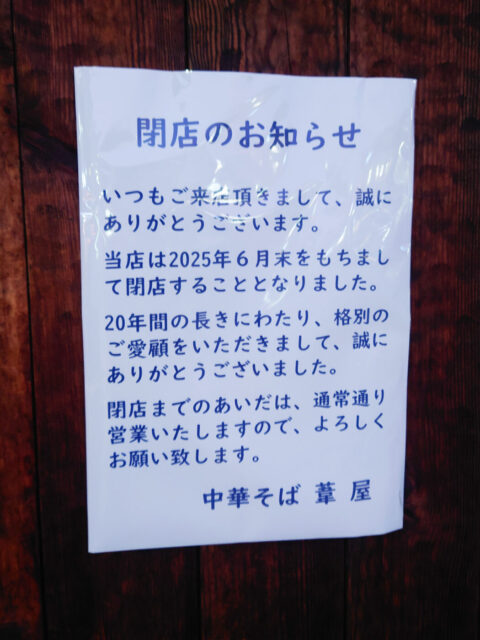 閉店のお知らせ
いつもご来店頂きまして、誠に
ありがとうございます。
当店は2025年６月末をもちまし
て閉店することとなりました。
20年間の長きにわたり、格別の
ご愛顧をいただきまして、誠に
ありがとうございました。
閉店までのあいだは、通常通り
営業いたしますので、よろしく
お願い致します。
中華そば 葦 屋